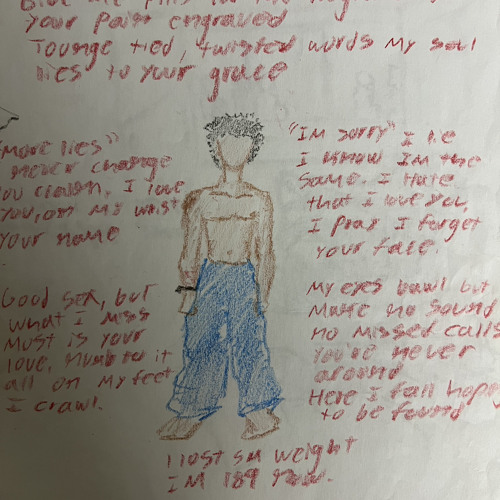 Blue
your Pain engraved
Tounge tied, twisted words my soul
lies to your grace
"More lies"
never change
you clown, I love
you, on my wrist
your name
Good sex, but
what I miss
Most is your
love, Numb to it
all on my feet
I crawl.
"IM sorry" I lie
I know IM the
same. I Hate
that I love you,
I pray I forget
your face.
My eyes bawl but
Make no sound
no missed calls
You're never
around
Here I fall hoping
to be found
I lost sm weight
IM 189 now.